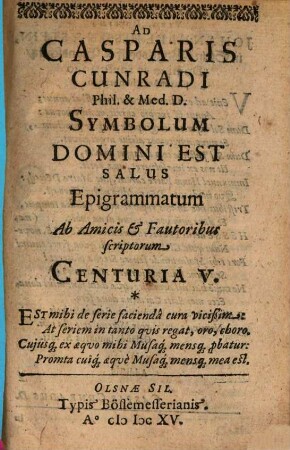 AD
CASPARIS
CUNRADI
Phil. & Med. D.
SYMBOLUM
DOMINI EST
SALUS
Epigrammatum
Ab Amicis & Fautoribus
scriptorum
CENTURIA V.
*
EST mihi de serie faciendâ cura vicissim:
At seriem in tanto qvis regat, oro, choro.
Cujusq, ex æqvo mihi Musaq, mensq, pbatur:
Promta cuiq, æqvè Musaq, mensq, mea est.
OLSNÆ SIL.
Typis Bössemesserianis.
A° cIɔ Iɔc XV.